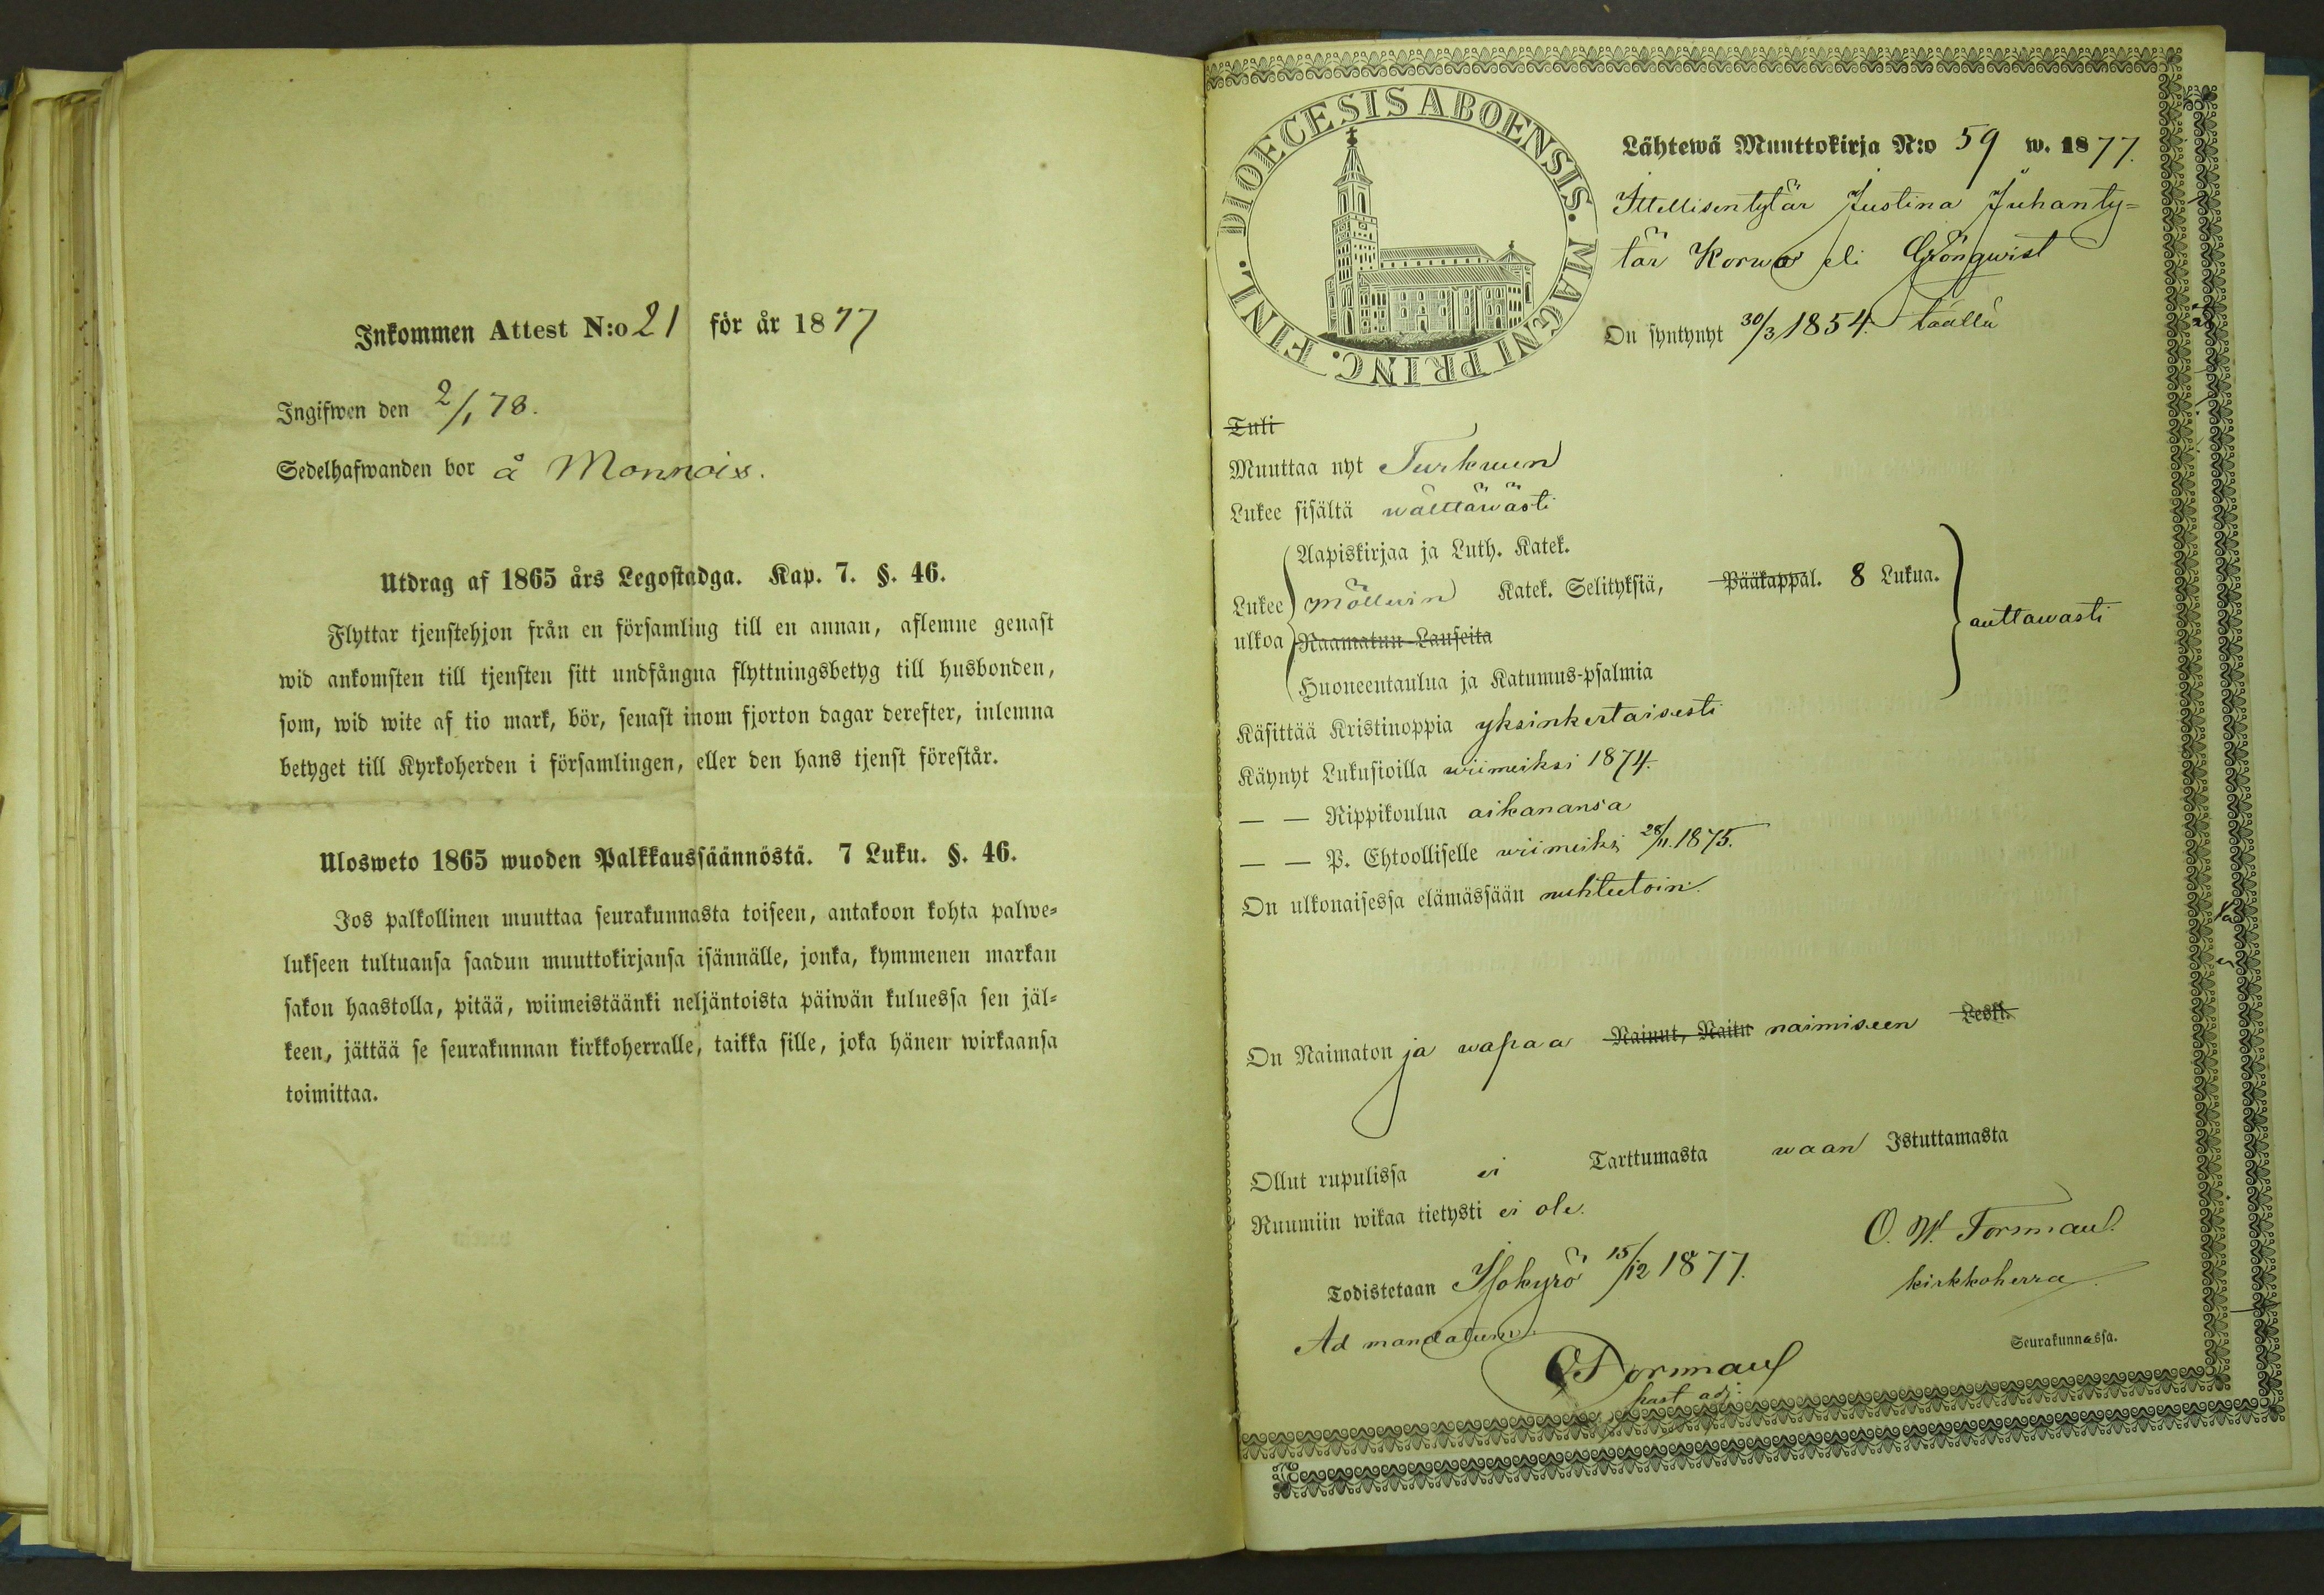 Inkommen Attest N:o 21 för år 1877
Ingifwen den 2/1 78.
Sedelhafwanden bor å Monnois.
Utdrag af 1865 års Legostadga. Kap. 7. §. 46.
Flyttar tjenstehjon från en församling till en annan, aflemne genast
wid ankomsten till tjensten sitt undfångna flyttningsbetyg till husbonden,
som, wid wite af tio mark, bör, senast inom fjorton dagar derefter, inlemna
betyget till Kyrkoherden i församlingen, eller den hans tjenst förestår.
Ulosweto 1865 wuoden Palkkaussäännöstä. 7 Luku. §. 46.
Jos palkollinen muuttaa seurakunnasta toiseen, antakoon kohta palwe=
lukseen tultuansa saadun muuttokirjansa isännälle, jonka, kymmenen markan
sakon haastolla, pitää, wiimeistäänki neljäntoista päiwän kuluessa sen jäl=
keen, jättää se seurakunnan kirkkoherralle, taikka sille, joka hänen wirkaansa
toimittaa.
DIOECESIS ABOENSIS. MAGNI PRINC. FINL.
Lähtewä Muuttokirja N:o 59 w. 1877.
Ittellisentytär Justina Juhanty=
tär Korwa eli Grönqwist
On syntynyt 30/3 1854. täällä
Tuli
Muuttaa nyt Turkuun
Lukee sisältä wälttäwästi
Aapiskirjaa ja Luth. Katek.
Lukee Möllerin Katek. Selityksiä, Pääkappal. 8 Lukua.
ulkoa Raamatun-Lauseita auttawasti
Huoneentaulua ja Katumus-psalmia
Käsittää Kristinoppia yksinkertaisesti
Käynyt Lukusioilla wiimeiksi 1874.
— — Rippikoulua aikanansa
— — P. Ehtoolliselle wiimeiksi 28/11 1875.
On ulkonaisessa elämässään nuhteetoin.
On Naimaton ja wapaa Nainut, Naitu naimiseen Leski.
Ollut rupulissa ei Tarttumasta waan Istuttamasta
Ruumiin wikaa tietysti ei ole.
Todistetaan Isokyrö 15/12 1877.
O. W. Forsman.
kirkkoherra
Ad mandatum:
O Forsman
past adj.
Seurakunnassa.